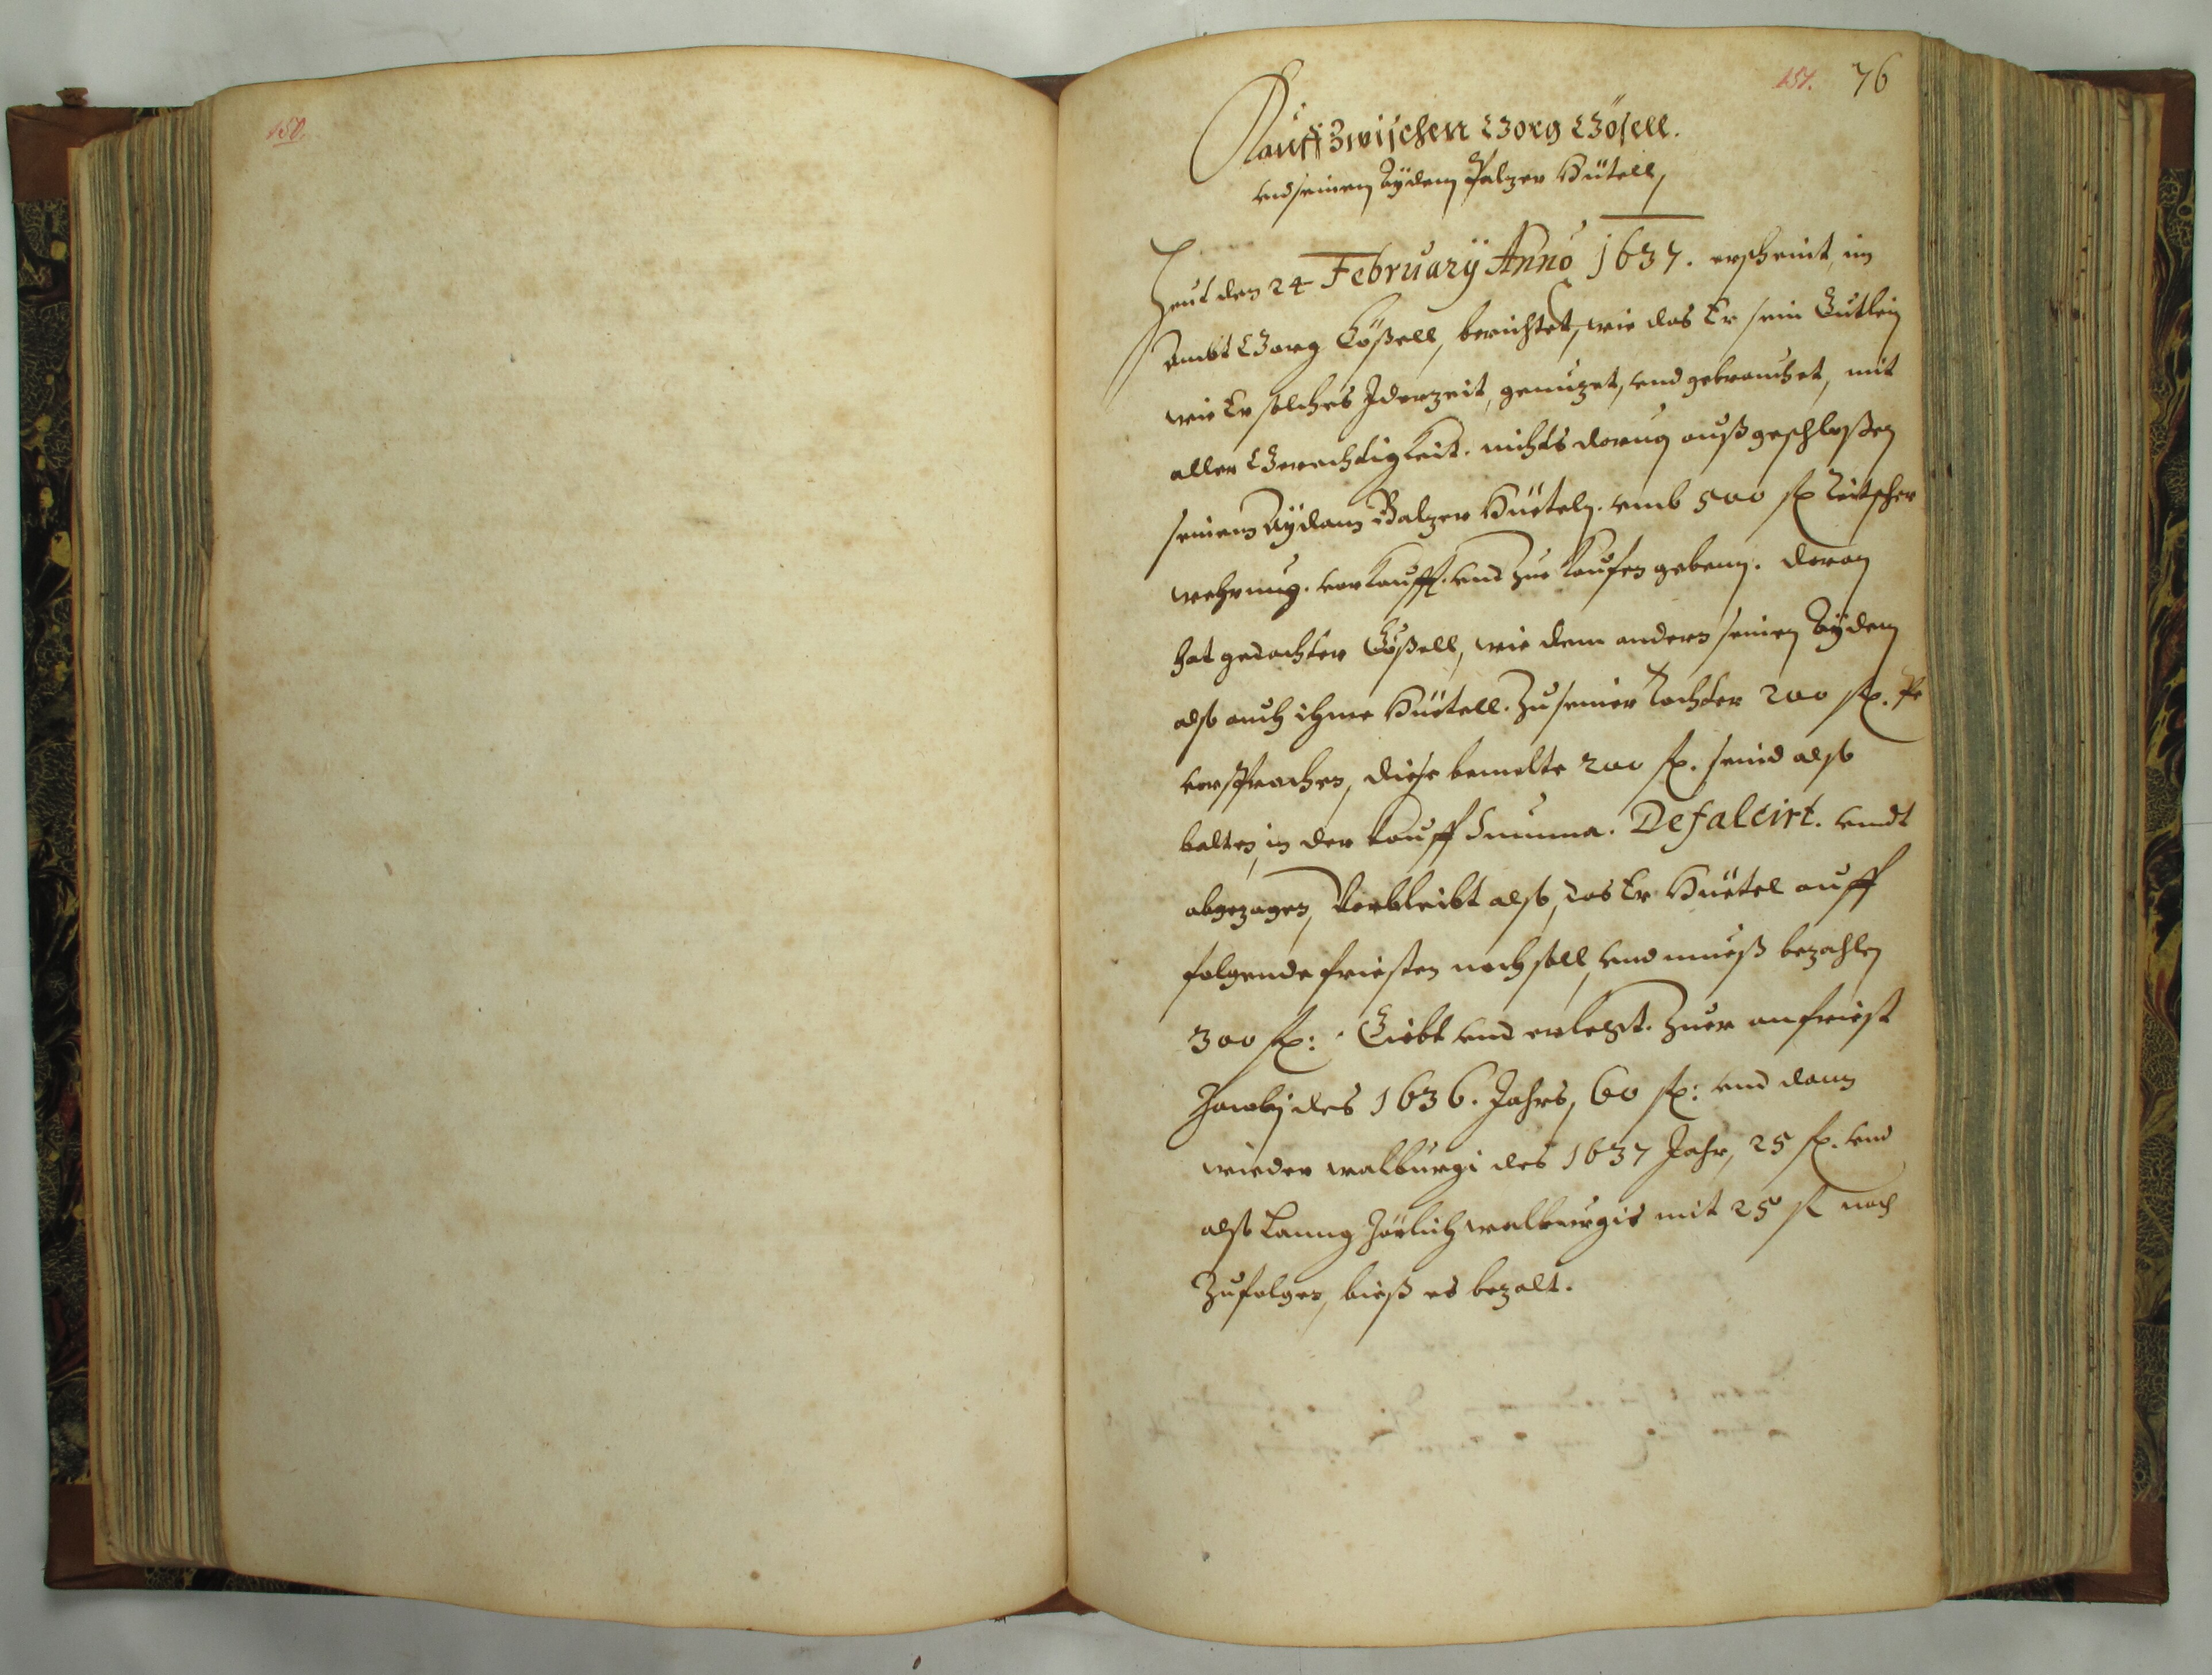 150.
151. 76
Kauff Zwischen Georg Gößell.
vnd seinem Aÿdem Palzer Hüetell,
Heut den 24 Februarÿ Anno 1637. erscheint, im
Ambt Georg Gößell, berichtet, wie das Er sein Güetlein
wie Er solches Jderzeit, genuzet, vnd gebrauchet, mit
aller Gerechtigkeit. nichts dorvon außgeschloßen
seinem Aÿdam Balzer Hüeteln. vmb 500 fl teitscher
wehrung. verkaufft. vnd zue kaufen geben. doran
hat gedachter Gößell, wie dem andern seinen Aÿdem
also auch ihme Hüetell. Zu seiner Tochter 200 fl.
versprochen, diese bemelte 200 fl. seind also
balten, in der kauff Summa. Defalcirt. vndt
abgezogen, Verbleibt also, das Er Hüetel auff
folgende friesten noch soll, vnd mueß bezahlen
300 fl: Giebt vnd erlegt. zuer anfriest
Jacobj des 1636. Jahrs, 60 fl: vnd dann
wieder walburgi des 1637 Jahr, 25 fl. vnd
also lanng Järlich walburgis mit 25 fl nach
Zufolgen, bieß es bezalt.